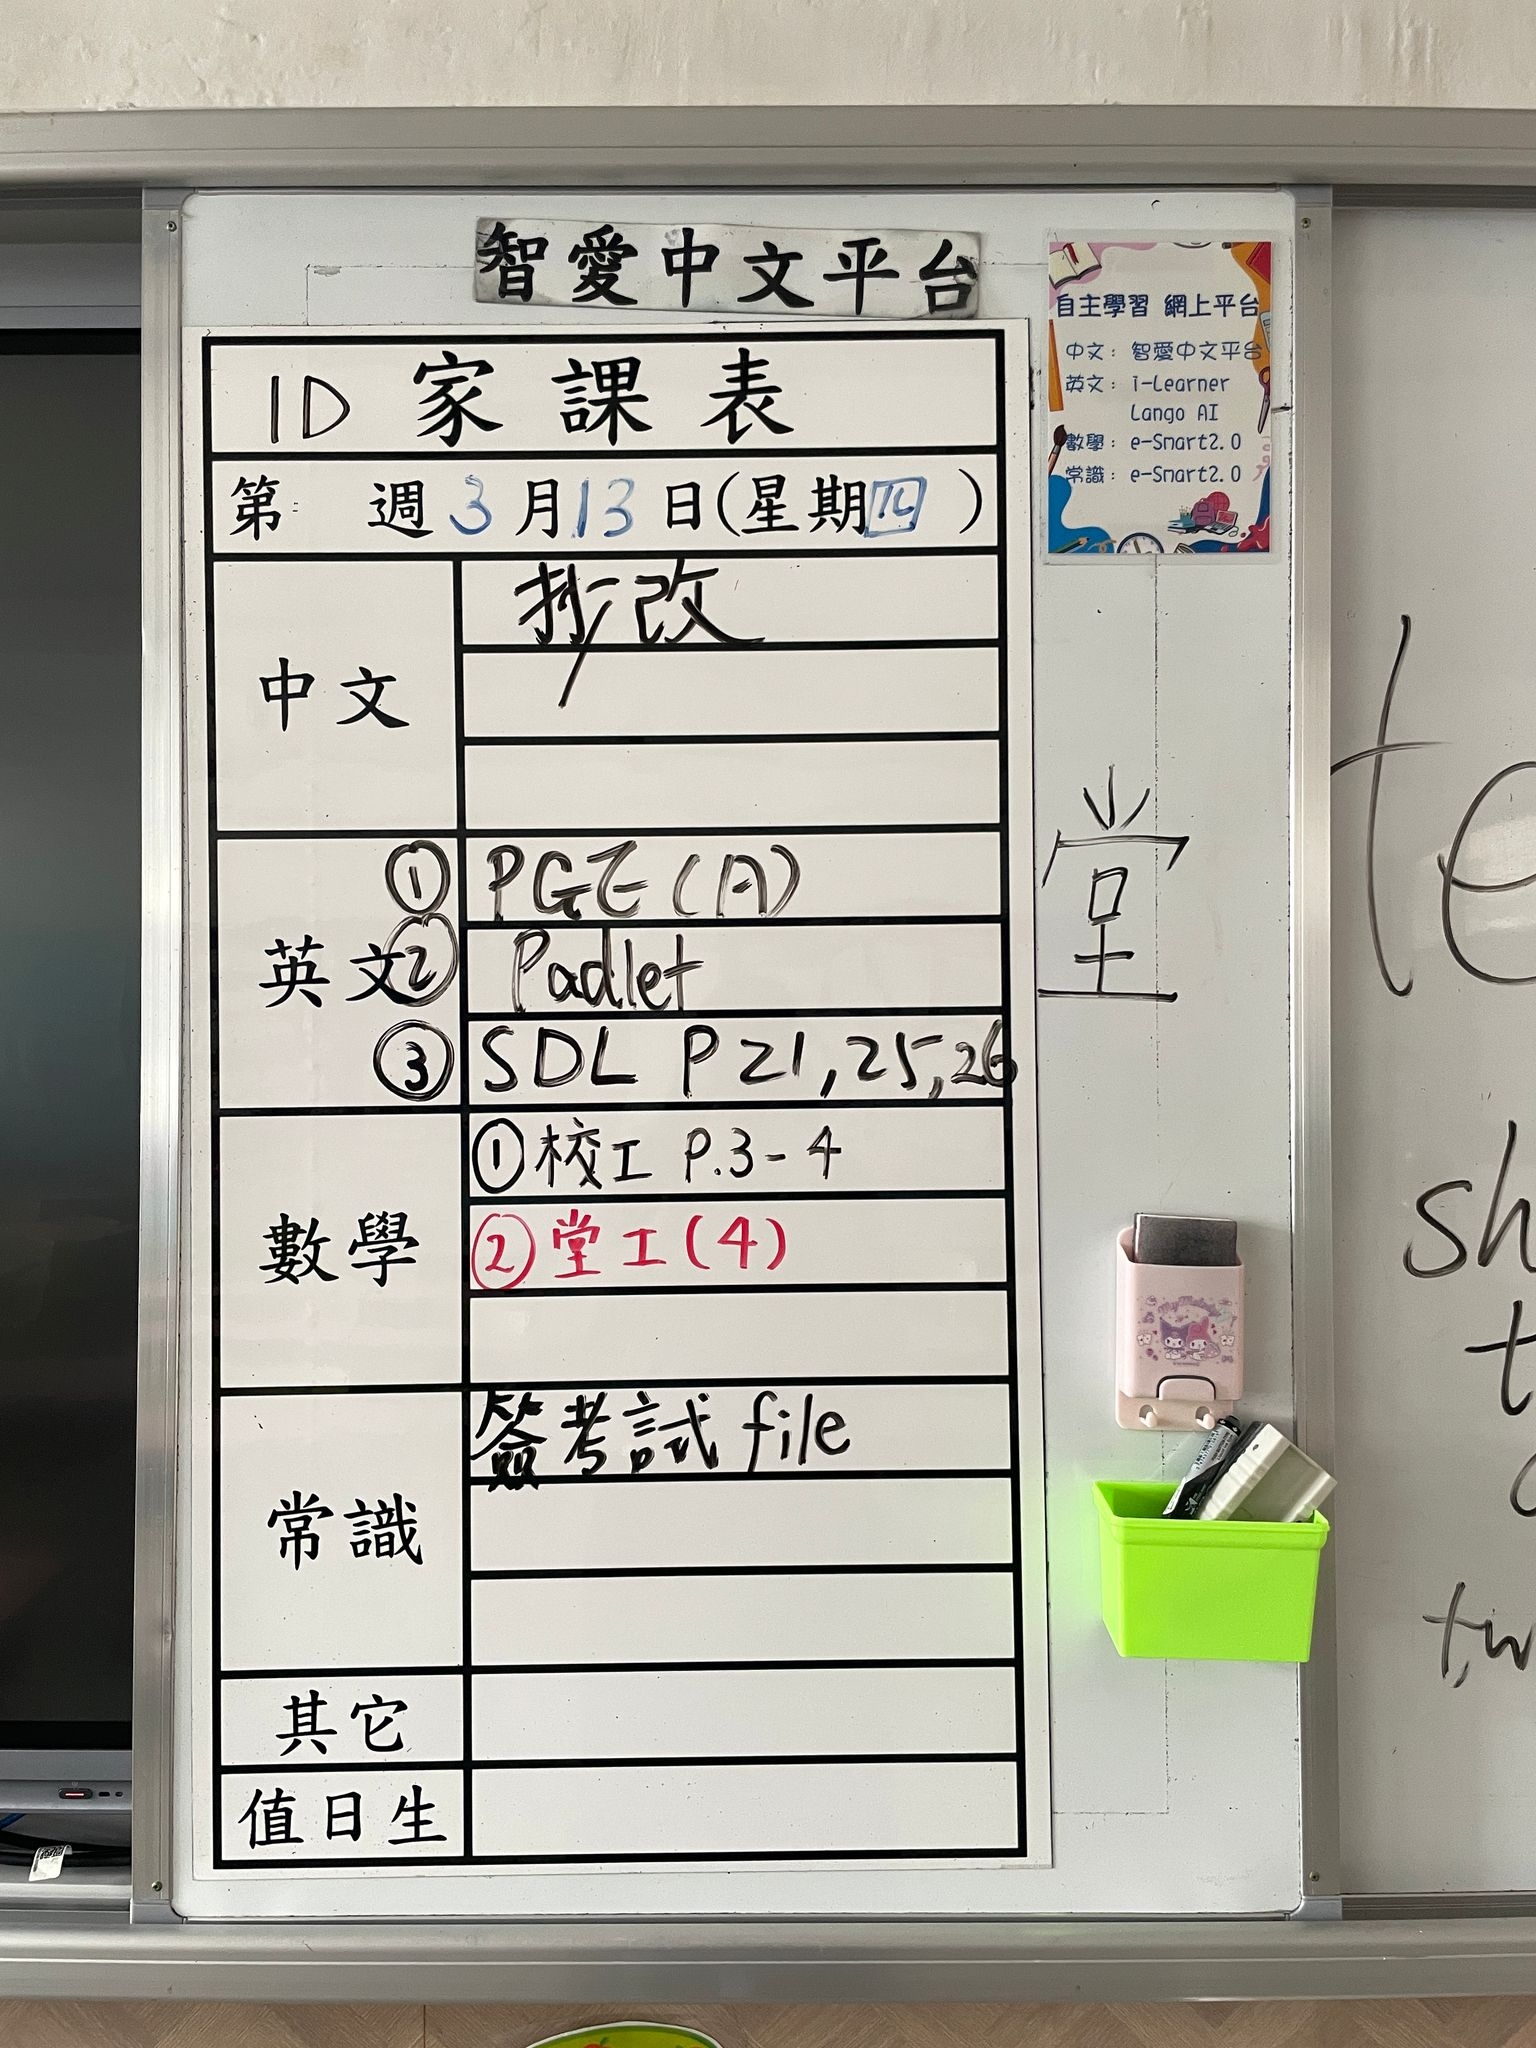 智愛中文平台
自主學習 網上平台
中文：智愛中文平台
英文：i-Learner
Lango AI
數學：e-Smart2.0
常識：e-Smart2.0
1D 家課表
第 週 3月13日(星期四)
中文
抄改
英文
① PGE(A)
② Padlet
③ SDL P21,25,26
堂
數學
①校工 P.3-4
②堂工(4)
常識
簽考試file
其它
值日生
te
sh
t
tw